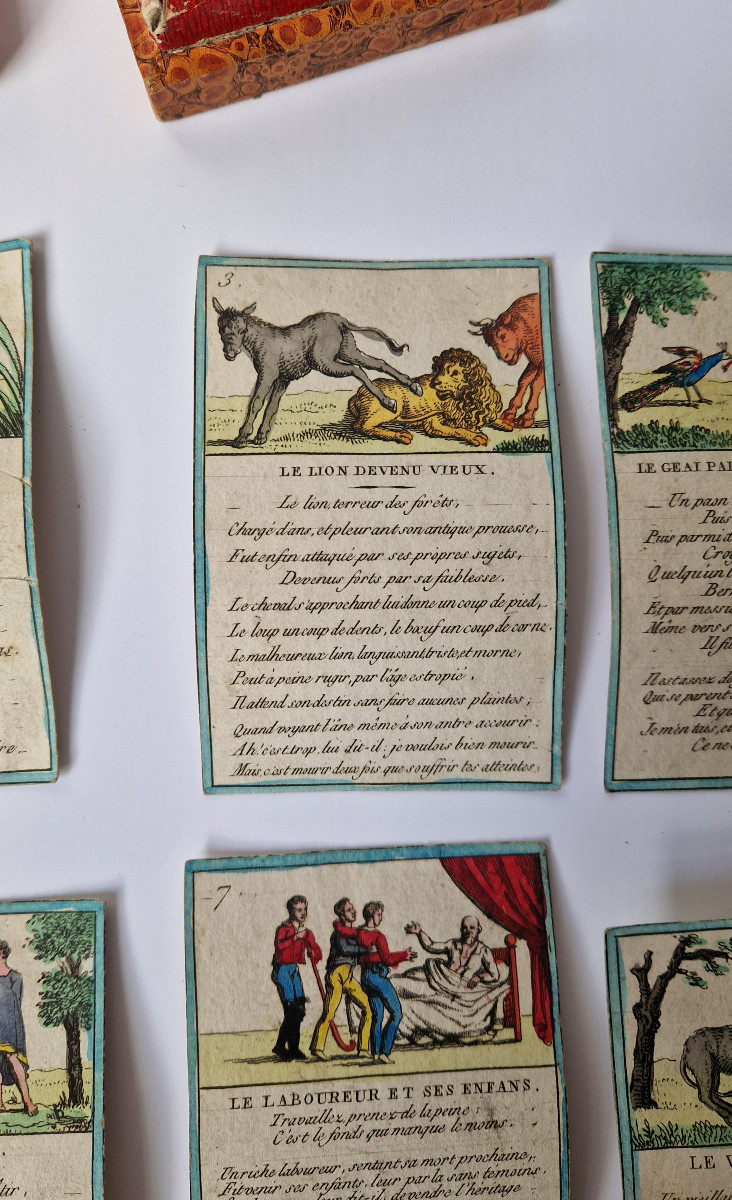 3.
LE LION DEVENU VIEUX.
Le lion, terreur des forêts,
Chargé d'ans, et pleurant son antique prouesse,
Fut enfin attaqué par ses propres sujets,
Devenus forts par sa faiblesse.
Le cheval s'approchant lui donne un coup de pied,
Le loup un coup de dents, le bœuf un coup de corne.
Le malheureux lion, languissant, triste, et morne,
Peut à peine rugir, par l'âge estropié.
Il attend son destin sans faire aucunes plaintes;
Quand voyant l'âne même à son antre accourir:
Ah! c'est trop, lui dit-il: je voulois bien mourir
Mais, c'est mourir deux fois que souffrir tes atteintes,
LE GEAI PA
Un paon
Puis
Puis parmi d'
Cro
Quelqu'un l
Ber
Et par messi
Même vers s
Il fu
Il est assez d
Qui se parent
Et qu
Je m'en tais, e
Ce ne
7
LE LABOUREUR ET SES ENFANS.
Travaillez, prenez de la peine:
C'est le fonds qui manque le moins.
Un riche laboureur, sentant sa mort prochaine,
Fit venir ses enfants, leur parla sans témoins.
leur dit-il, de vendre l'héritage
LE V